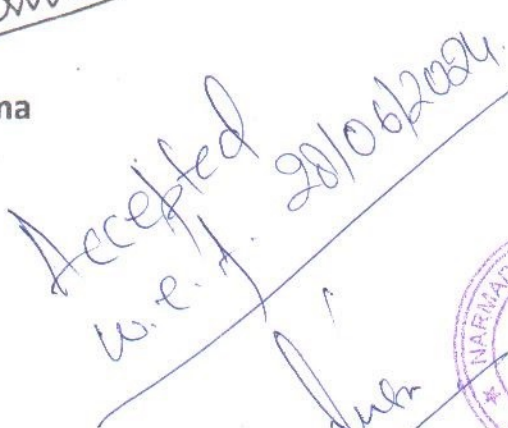 ma
Accepted
w.e.f. 28/06/2024.
NARMAD